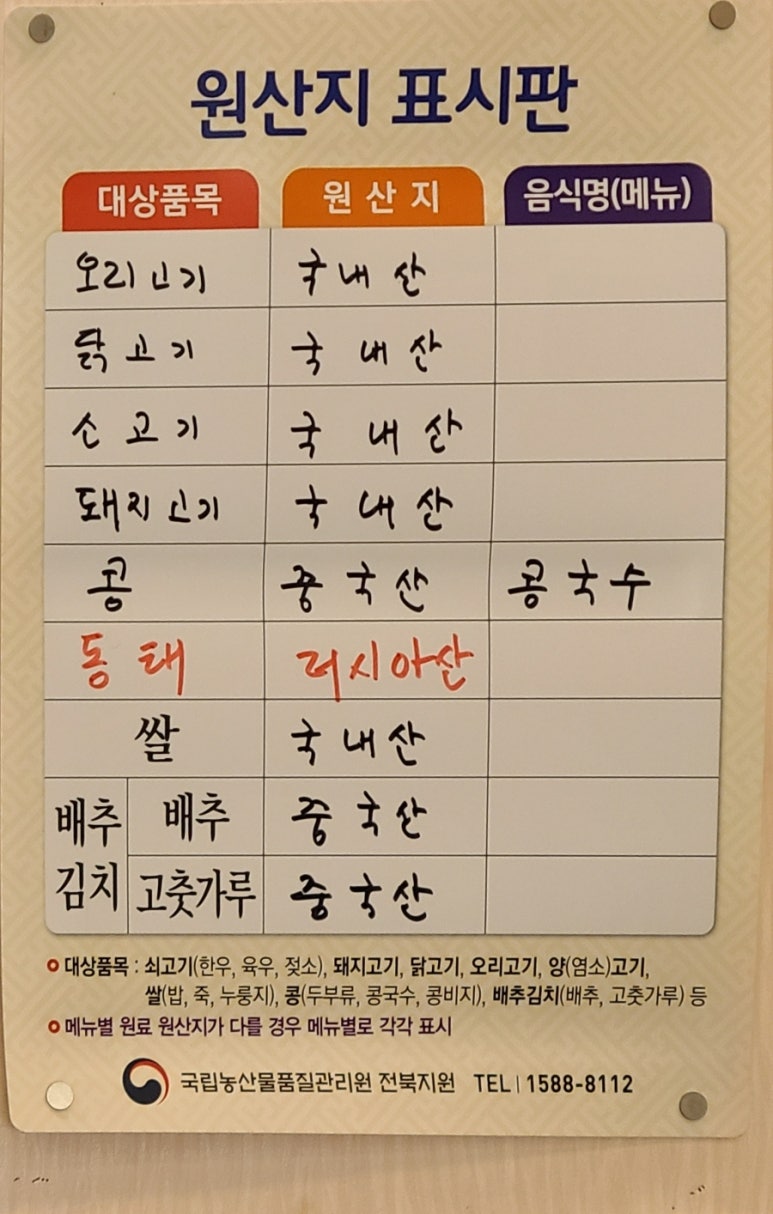 원산지 표시판
대상품목 원산지 음식명(메뉴)
오리고기 국내산
닭고기 국내산
소고기 국내산
돼지고기 국내산
콩 중국산 콩국수
동태 러시아산
쌀 국내산
배추김치 배추 중국산
고춧가루 중국산
대상품목 : 쇠고기(한우, 육우, 젖소), 돼지고기, 닭고기, 오리고기, 양(염소)고기,
쌀(밥, 죽, 누룽지), 콩(두부류, 콩국수, 콩비지), 배추김치(배추, 고춧가루) 등
메뉴별 원료 원산지가 다를 경우 메뉴별로 각각 표시
국립농산물품질관리원 전북지원 TEL | 1588-8112